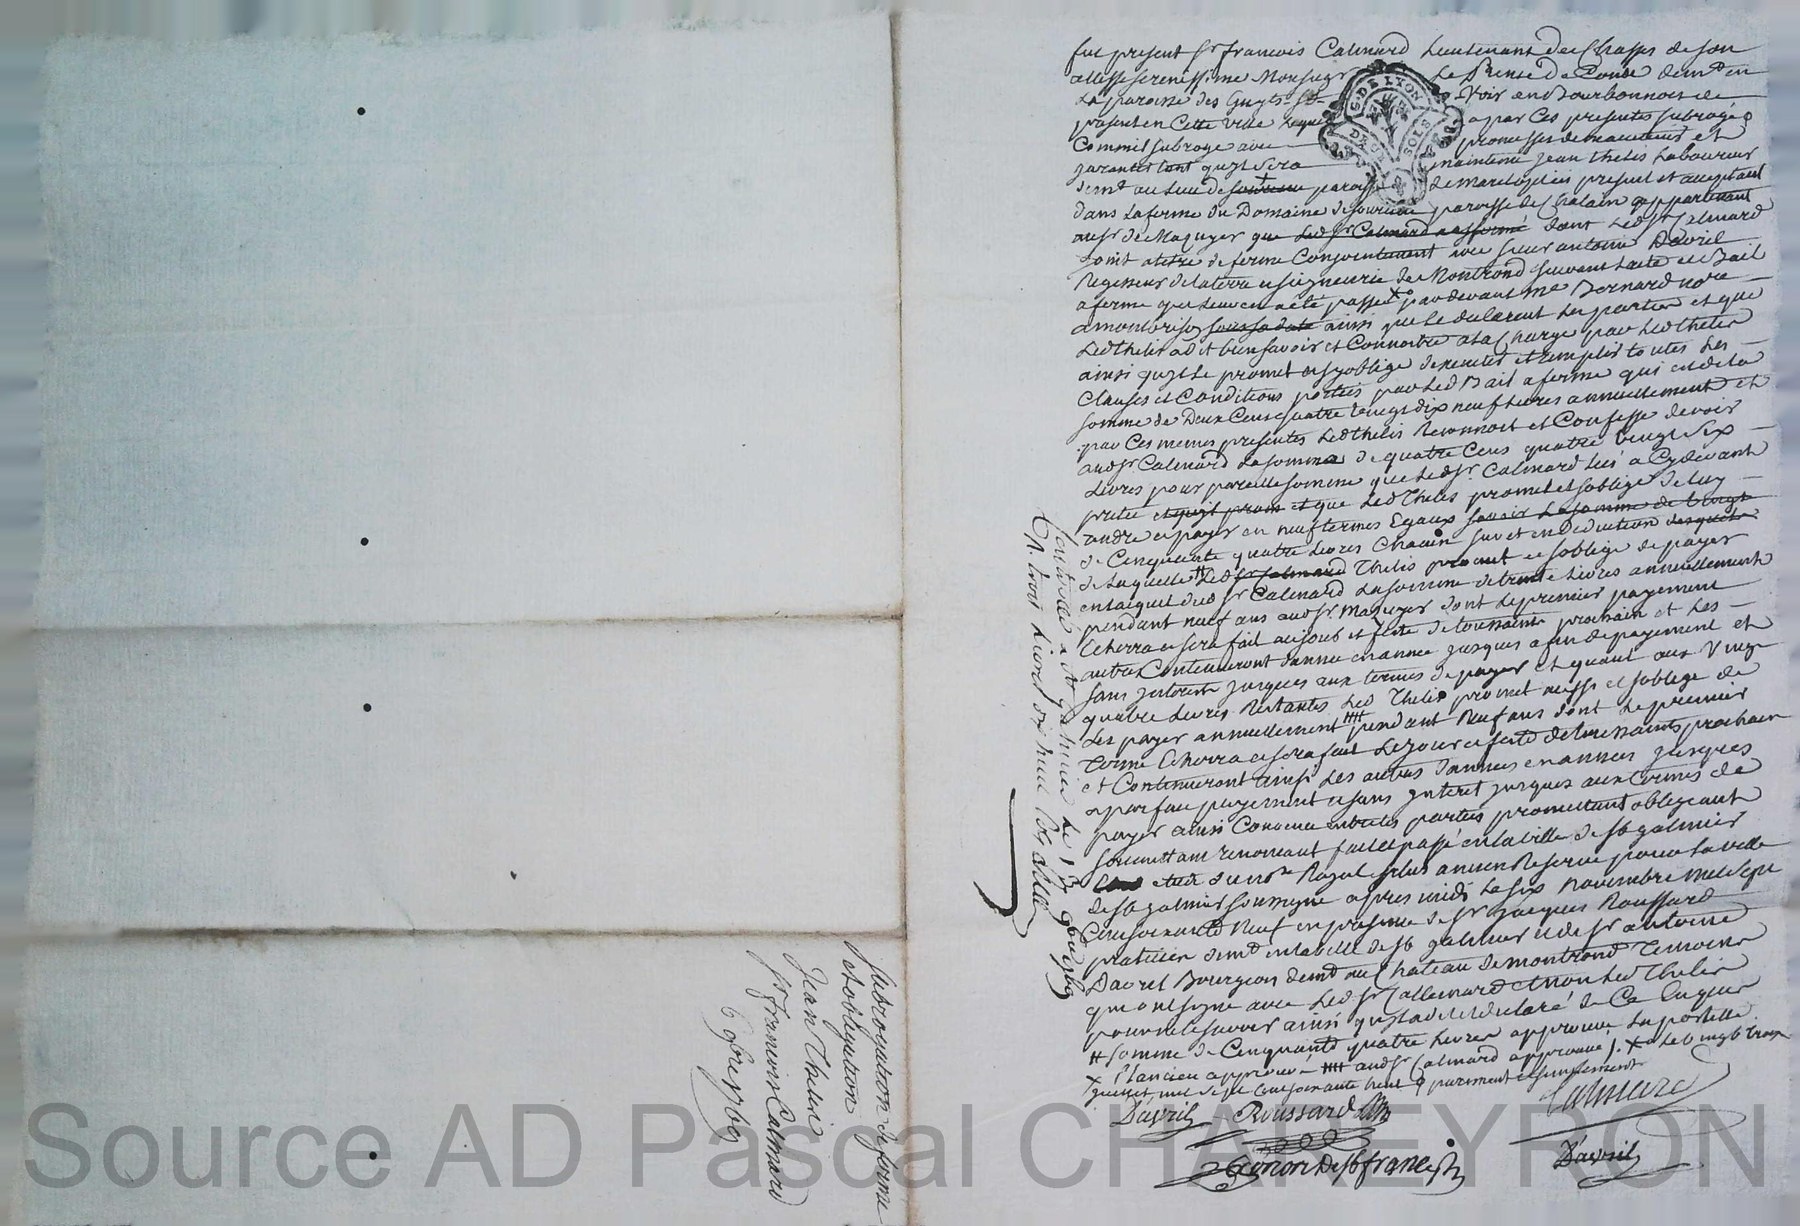 fut present Sr francois Calmard Lieutenant des Chasses de son
altesse serenissime Monseigr Le Prince De Condé demt en
La paroisse des Guyts St Voir en Bourbonnois de
present en Cette ville Lequel a par Ces presentes subrogé
Commis subroge avec promesses de maintenir et
garantir tant qu'il sera maintenu jean thelis Laboureur
demt au lieu de paroisse de marclopt ici present et acceptant
dans La ferme du Domaine de paroisse de Chalain appartenant
au Sr de Mazuyer que Led Sr Calmard a affermé dont Led Sr Calmard
jouit a titre de ferme Conjointement avec sieur antoine Davril
Regisseur de la terre et seigneurie de Montrond suivant Lacte de Bail
a ferme qui leur en a été passé pardevant Me Bernard nore
a montbrison ainsi que Le declarent Les parties et que
Led thelis a dit bien savoir et Connoitre a La Charge par Led thelis
ainsi qu'il Le promet et s'oblige d'executer et remplir toutes Les
Clauses et Conditions portées par Led Bail a ferme qui est de la
somme de Deux Cens quatre vingt dix neuf Livres annuellement et
par Ces memes presentes Led thelis Reconnoit et Confesse devoir
aud Sr Calmard La somme de quatre Cens quatre vingt six
Livres pour pareille somme que Led Sr Calmard Lui a Cydevant
pretée et que Led Thelis promet et s'oblige de luy
rendre et payer en neuf termes Egaux savoir La somme de vingt
de Cinquante quatre Livres Chacun sur et en Deduction
de Laquelle # Led Sr Calmard Thelis promet et s'oblige de payer
en lacquit dud Sr Calmard La somme de trente Livres annuellement
pendant neuf ans aud Sr Mazuyer dont Le premier payement
Echerra et sera fait au jour et feste de toussaints prochain et Les
autres Continueront d'année en année jusques a fin de payement et
sans interest jusques aux termes de payer et quant aux Vingt
quatre Livres Restantes Led Thelis promet aussi et s'oblige de
Les payer annuellement pendant neuf ans dont Le premier
Terme Echerra et sera fait Le jour et feste de toussaints prochain
et Continueront ainsi Les autres d'années en années jusques
a parfait payement et sans interet jusques aux termes de
payer ainsi Convenu entre les parties promettant obligeant
soumettant renonceant fait et passé en la ville de St galmier
etude du nore Royal plus ancien Reservé pour La ville
de St galmier soussigné apres midi Le six novembre mil sept
Cens soixante Neuf en presence de Sr jacques Roussard
praticien demt en la ville de St galmier et de Sr antoine
Davril Bourgeois demt au Chateau de montrond Temoins
qui ont signé avec Led Sr Calmard et non Led Thelis
pour ne le savoir ainsi qu'il a dit et declaré de Ce Enquis
# somme de Cinquante quatre Livres approuvé La postille
aud Sr Calmard approuvé
Davril Roussard Calmard
Gonon De St france
Davril
Controllé a St galmier Le 13 9bre 1769
R. trois Livres
subrogation de ferme
et obligation
Jean Thelis
Sr francois Calmard
6 9bre 1769
G. DE LYON
DEUX SOLS
Source AD Pascal CHAREYRON